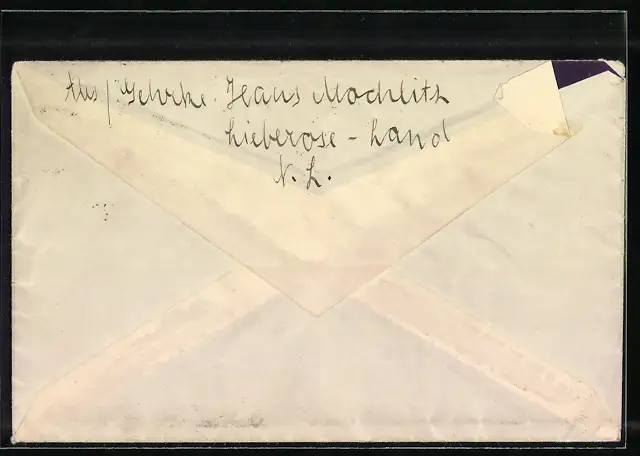 Abs/Gehrke Hans Mochlitz
Lieberose-Land
N. L.